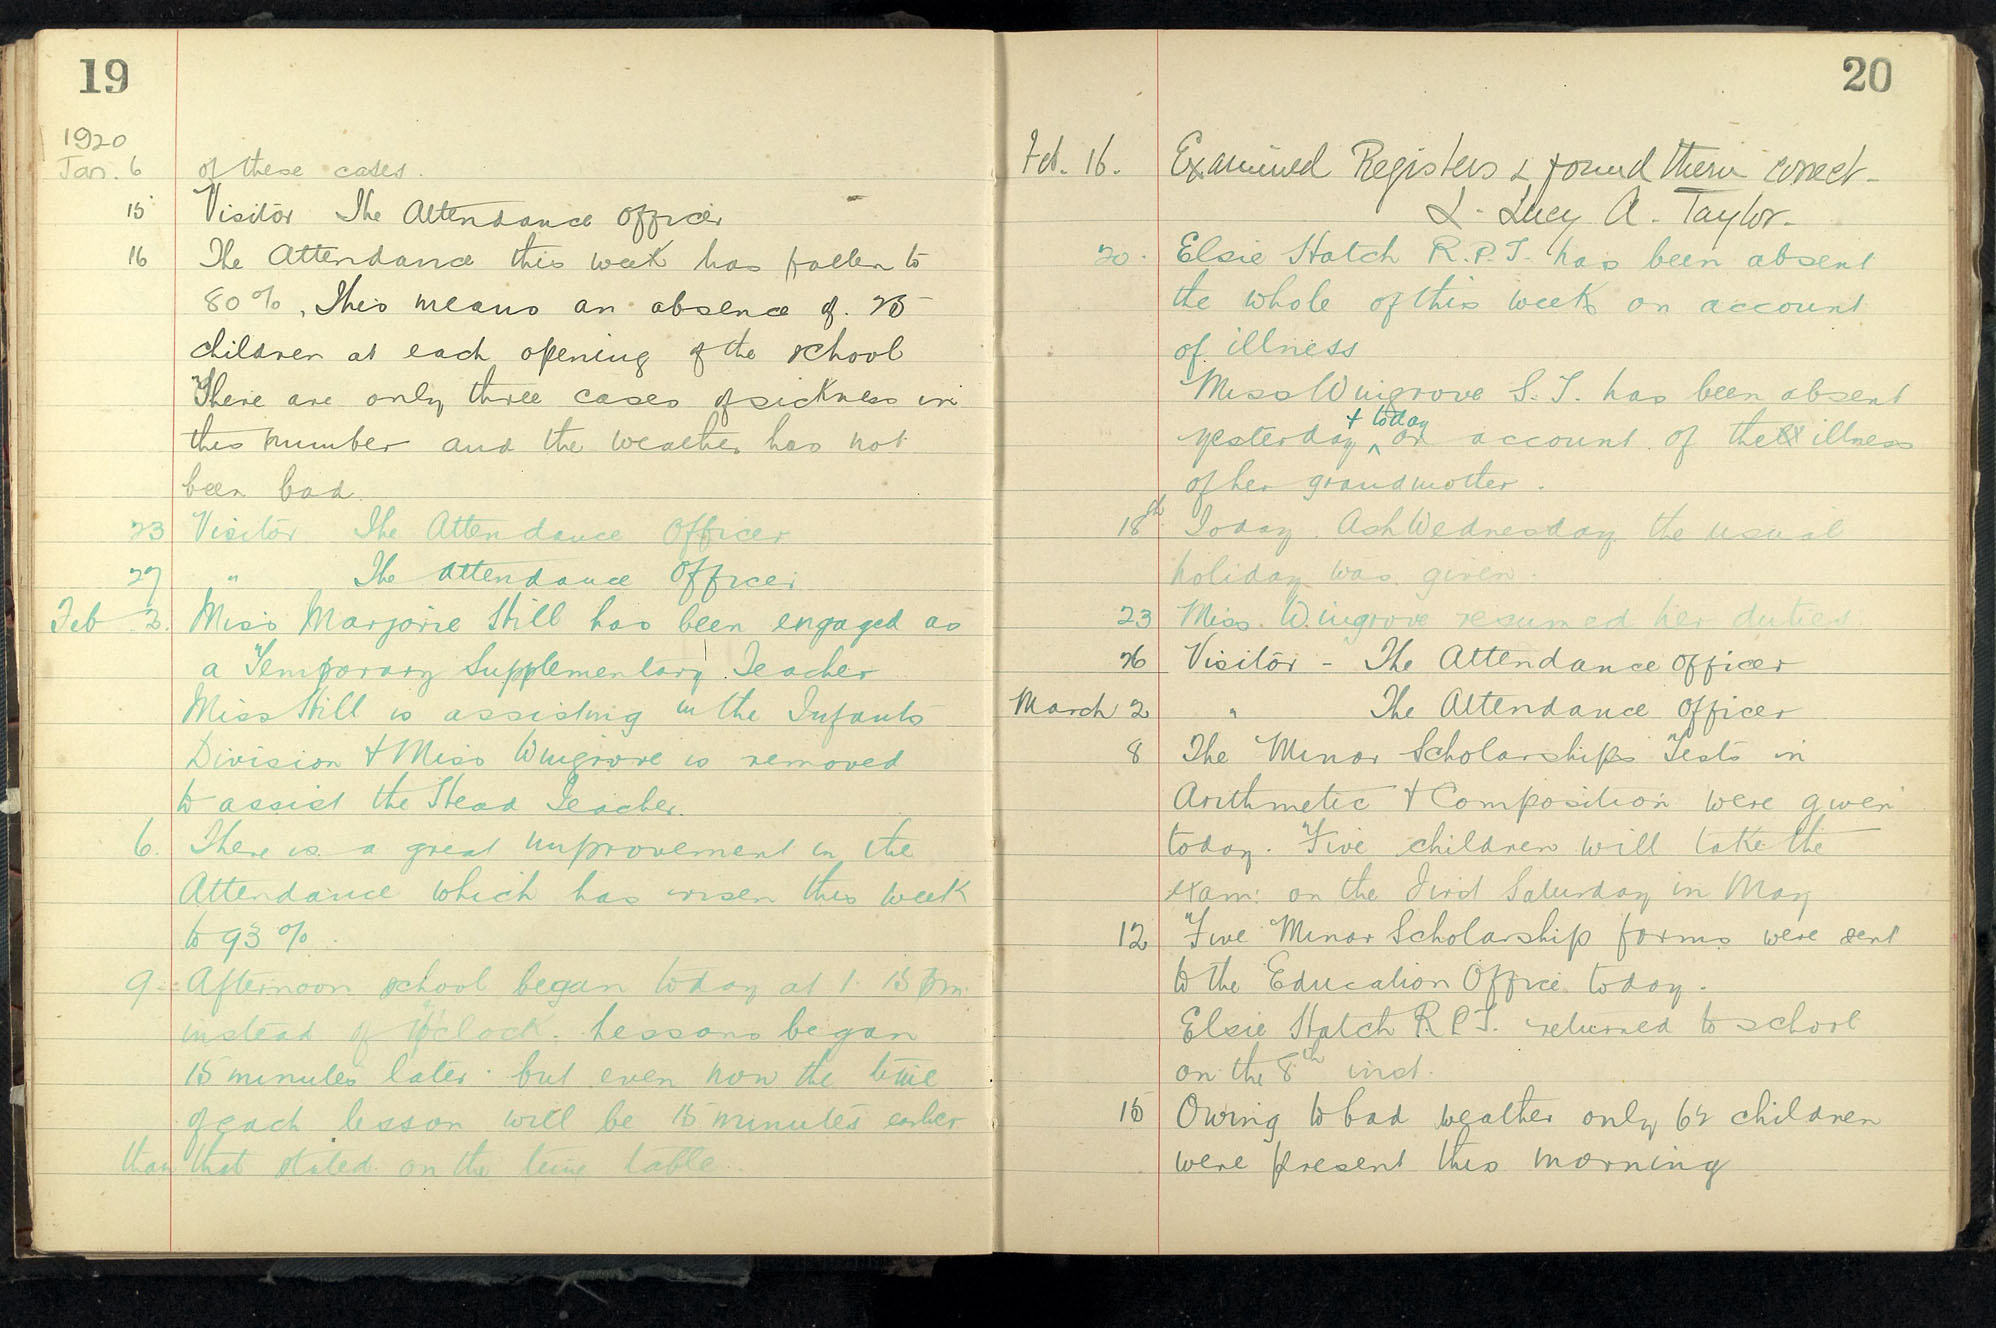 19
1920
Jan. 6 of these cases.
15 Visitor The Attendance Officer
16 The Attendance this week has fallen to
80%. This means an absence of 25
children at each opening of the school
There are only three cases of sickness in
this number and the weather has not
been bad.
23 Visitor The Attendance Officer
27 " The Attendance Officer
Feb 2. Miss Marjorie Hill has been engaged as
a Temporary Supplementary Teacher
Miss Hill is assisting in the Infants
Division & Miss Wingrove is removed
to assist the Head Teacher.
6. There is a great improvement in the
Attendance which has risen this week
to 93%.
9 Afternoon school began today at 1.15 pm.
instead of o'clock. Lessons began
15 minutes later but even now the time
of each lesson will be 15 minutes earlier
than that stated on the time table.
20
Feb. 16. Examined Registers & found them correct -
L. Lucy A. Taylor -
20. Elsie Hatch R.P.T. has been absent
the whole of this week on account
of illness
Miss Wingrove S.T. has been absent
yesterday & today on account of the illness
of her grandmother.
18th Today. Ash Wednesday the usual
holiday was given.
23 Miss. Wingrove resumed her duties
26 Visitor - The Attendance Officer
March 2 " The Attendance Officer
8 The Minor Scholarships Tests in
Arithmetic & Composition were given
today. Five children will take the
exam: on the First Saturday in May
12 Five Minor Scholarship forms were sent
to the Education Office today.
Elsie Hatch R.P.T. returned to school
on the 8th inst.
15 Owing to bad weather only 62 children
were present this morning